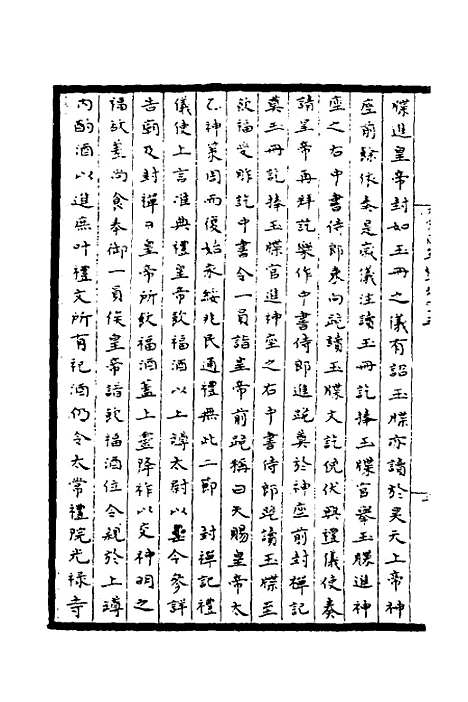 牒進皇帝封如玉冊之儀有詔玉牒亦讀於昊天上帝神
座前餘依奏是歲儀注讀玉冊訖捧玉牒官舉玉牒進神
座之右中書侍郎東向跪讀玉牒文訖俛伏興禮儀使奏
請皇帝再拜訖樂作中書侍郎進跪奠於神座前封禪記
奠玉冊訖捧玉牒官進神座之右中書侍郎跪讀玉牒至
飲福受胙訖中書令一員詣皇帝前跪稱曰天賜皇帝太
乙神策周而復始永綏兆民通禮無此二節 封禪記禮
儀使上言準典禮皇帝飲福酒以上罇太尉以 今參詳
告廟及封禪日皇帝所飲福酒蓋上靈降祚以交神明之
福欲差尚食奉御一員俟皇帝詣飲福酒位令親於上罇
內酌酒以進庶叶禮文所有祀酒仍令太常禮院光祿寺